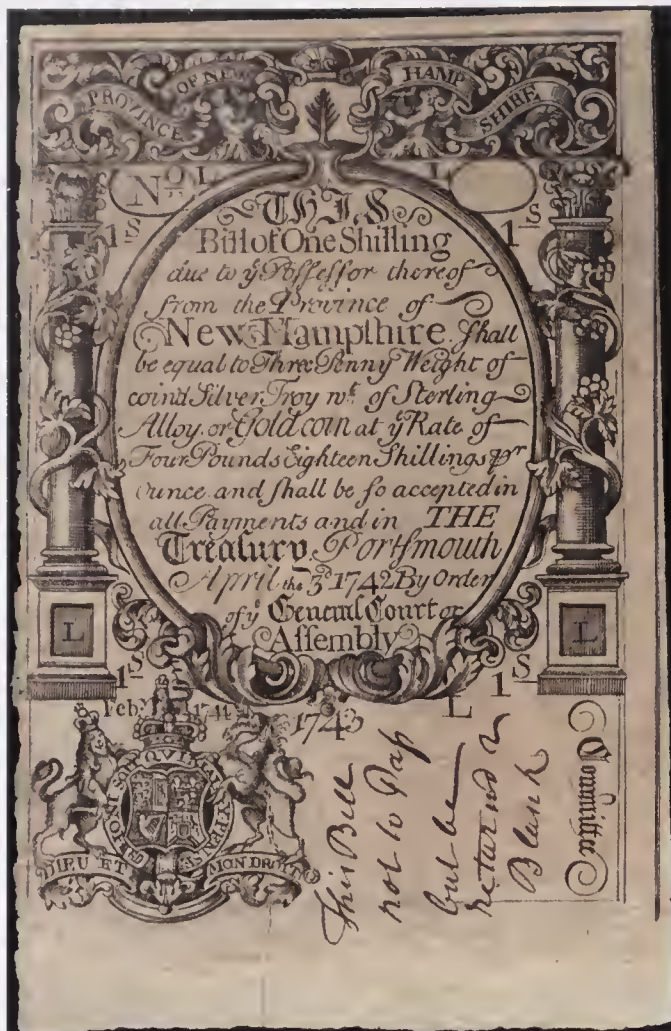 PROVINCE OF NEW HAMP SHIRE
No L L
1S 1S
THIS
Bill of One Shilling
due to ye Possessor thereof
from the Province of
New Hampshire Shall
be equal to Three Penny Weight of
coin'd Silver Troy wt. of Sterling
Alloy or Gold coin at ye Rate of
Four Pounds Eighteen Shillings pr
Ounce and shall be so accepted in
all Payments and in THE
Treasury Portsmouth
April the 3d 1742 By Order
of ye General Court or
Assembly
L L
1S 1S
Feb 174
1743 L
HONI SOIT QUI MAL Y PENSE
DIEU ET MON DROIT
This Bill
not to Pass
but be
returned a
Blank
Committee